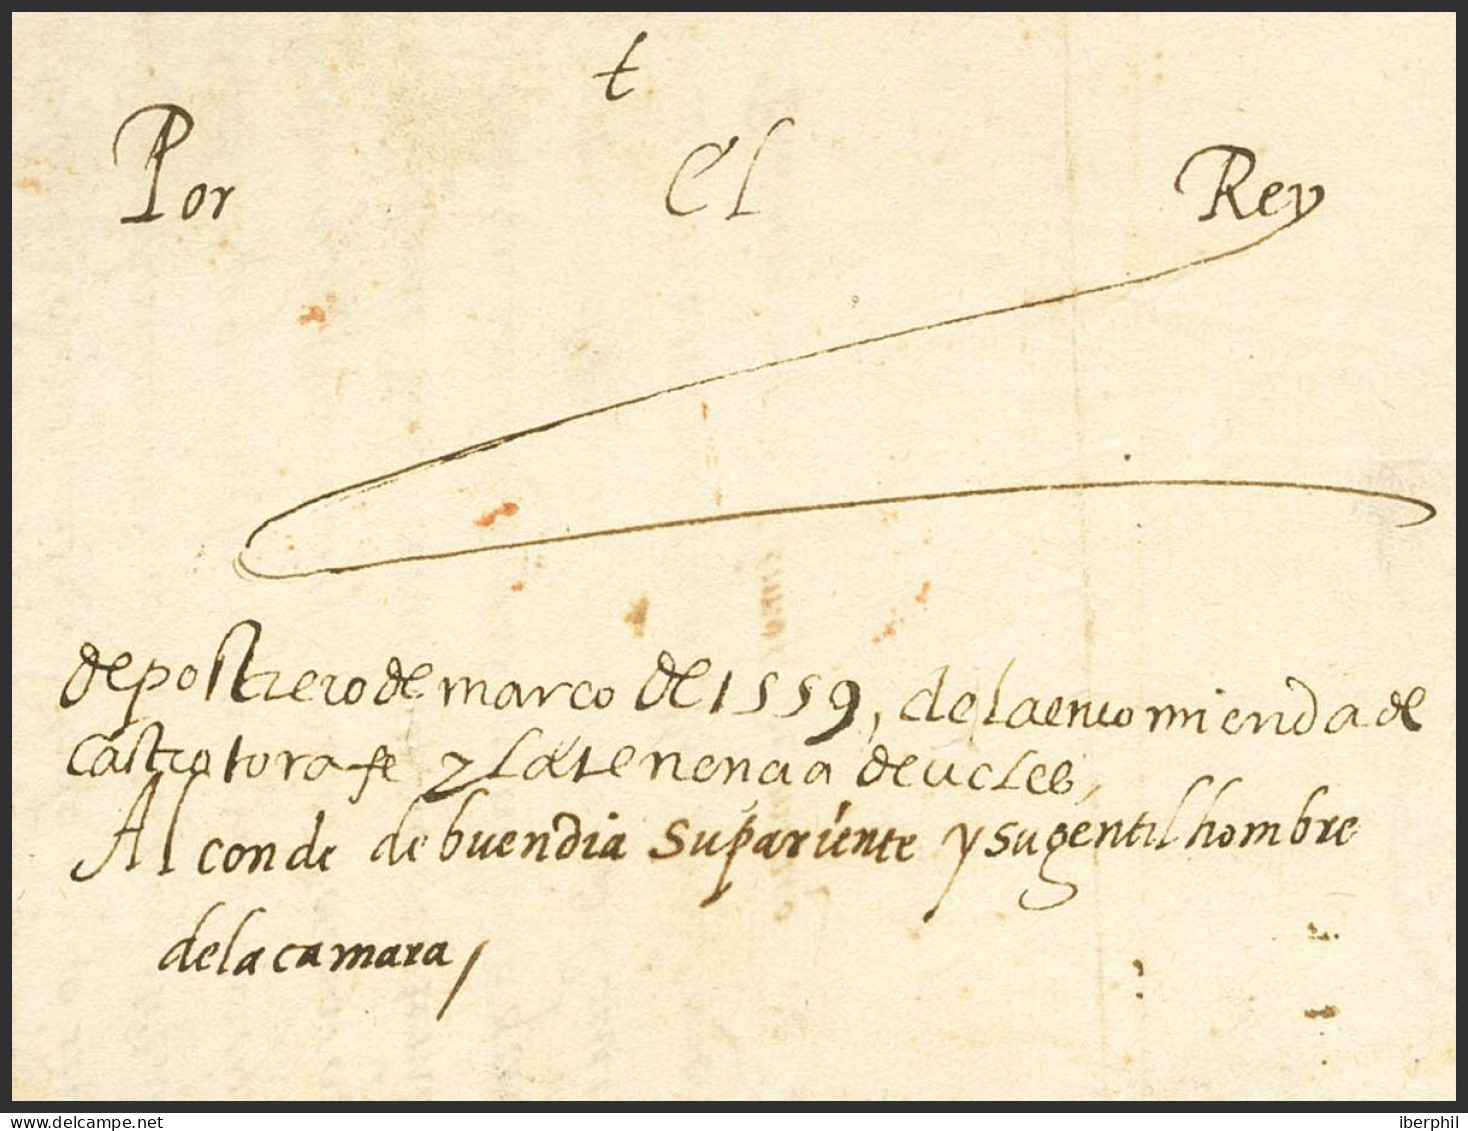 t
Por El Rey
de postrero de março de 1559, de la encomienda de
castrotorafe y la tenencia de ucles,
Al conde de buendia su pariente y su gentil hombre
de la camara,
delcampe.net
iberphil